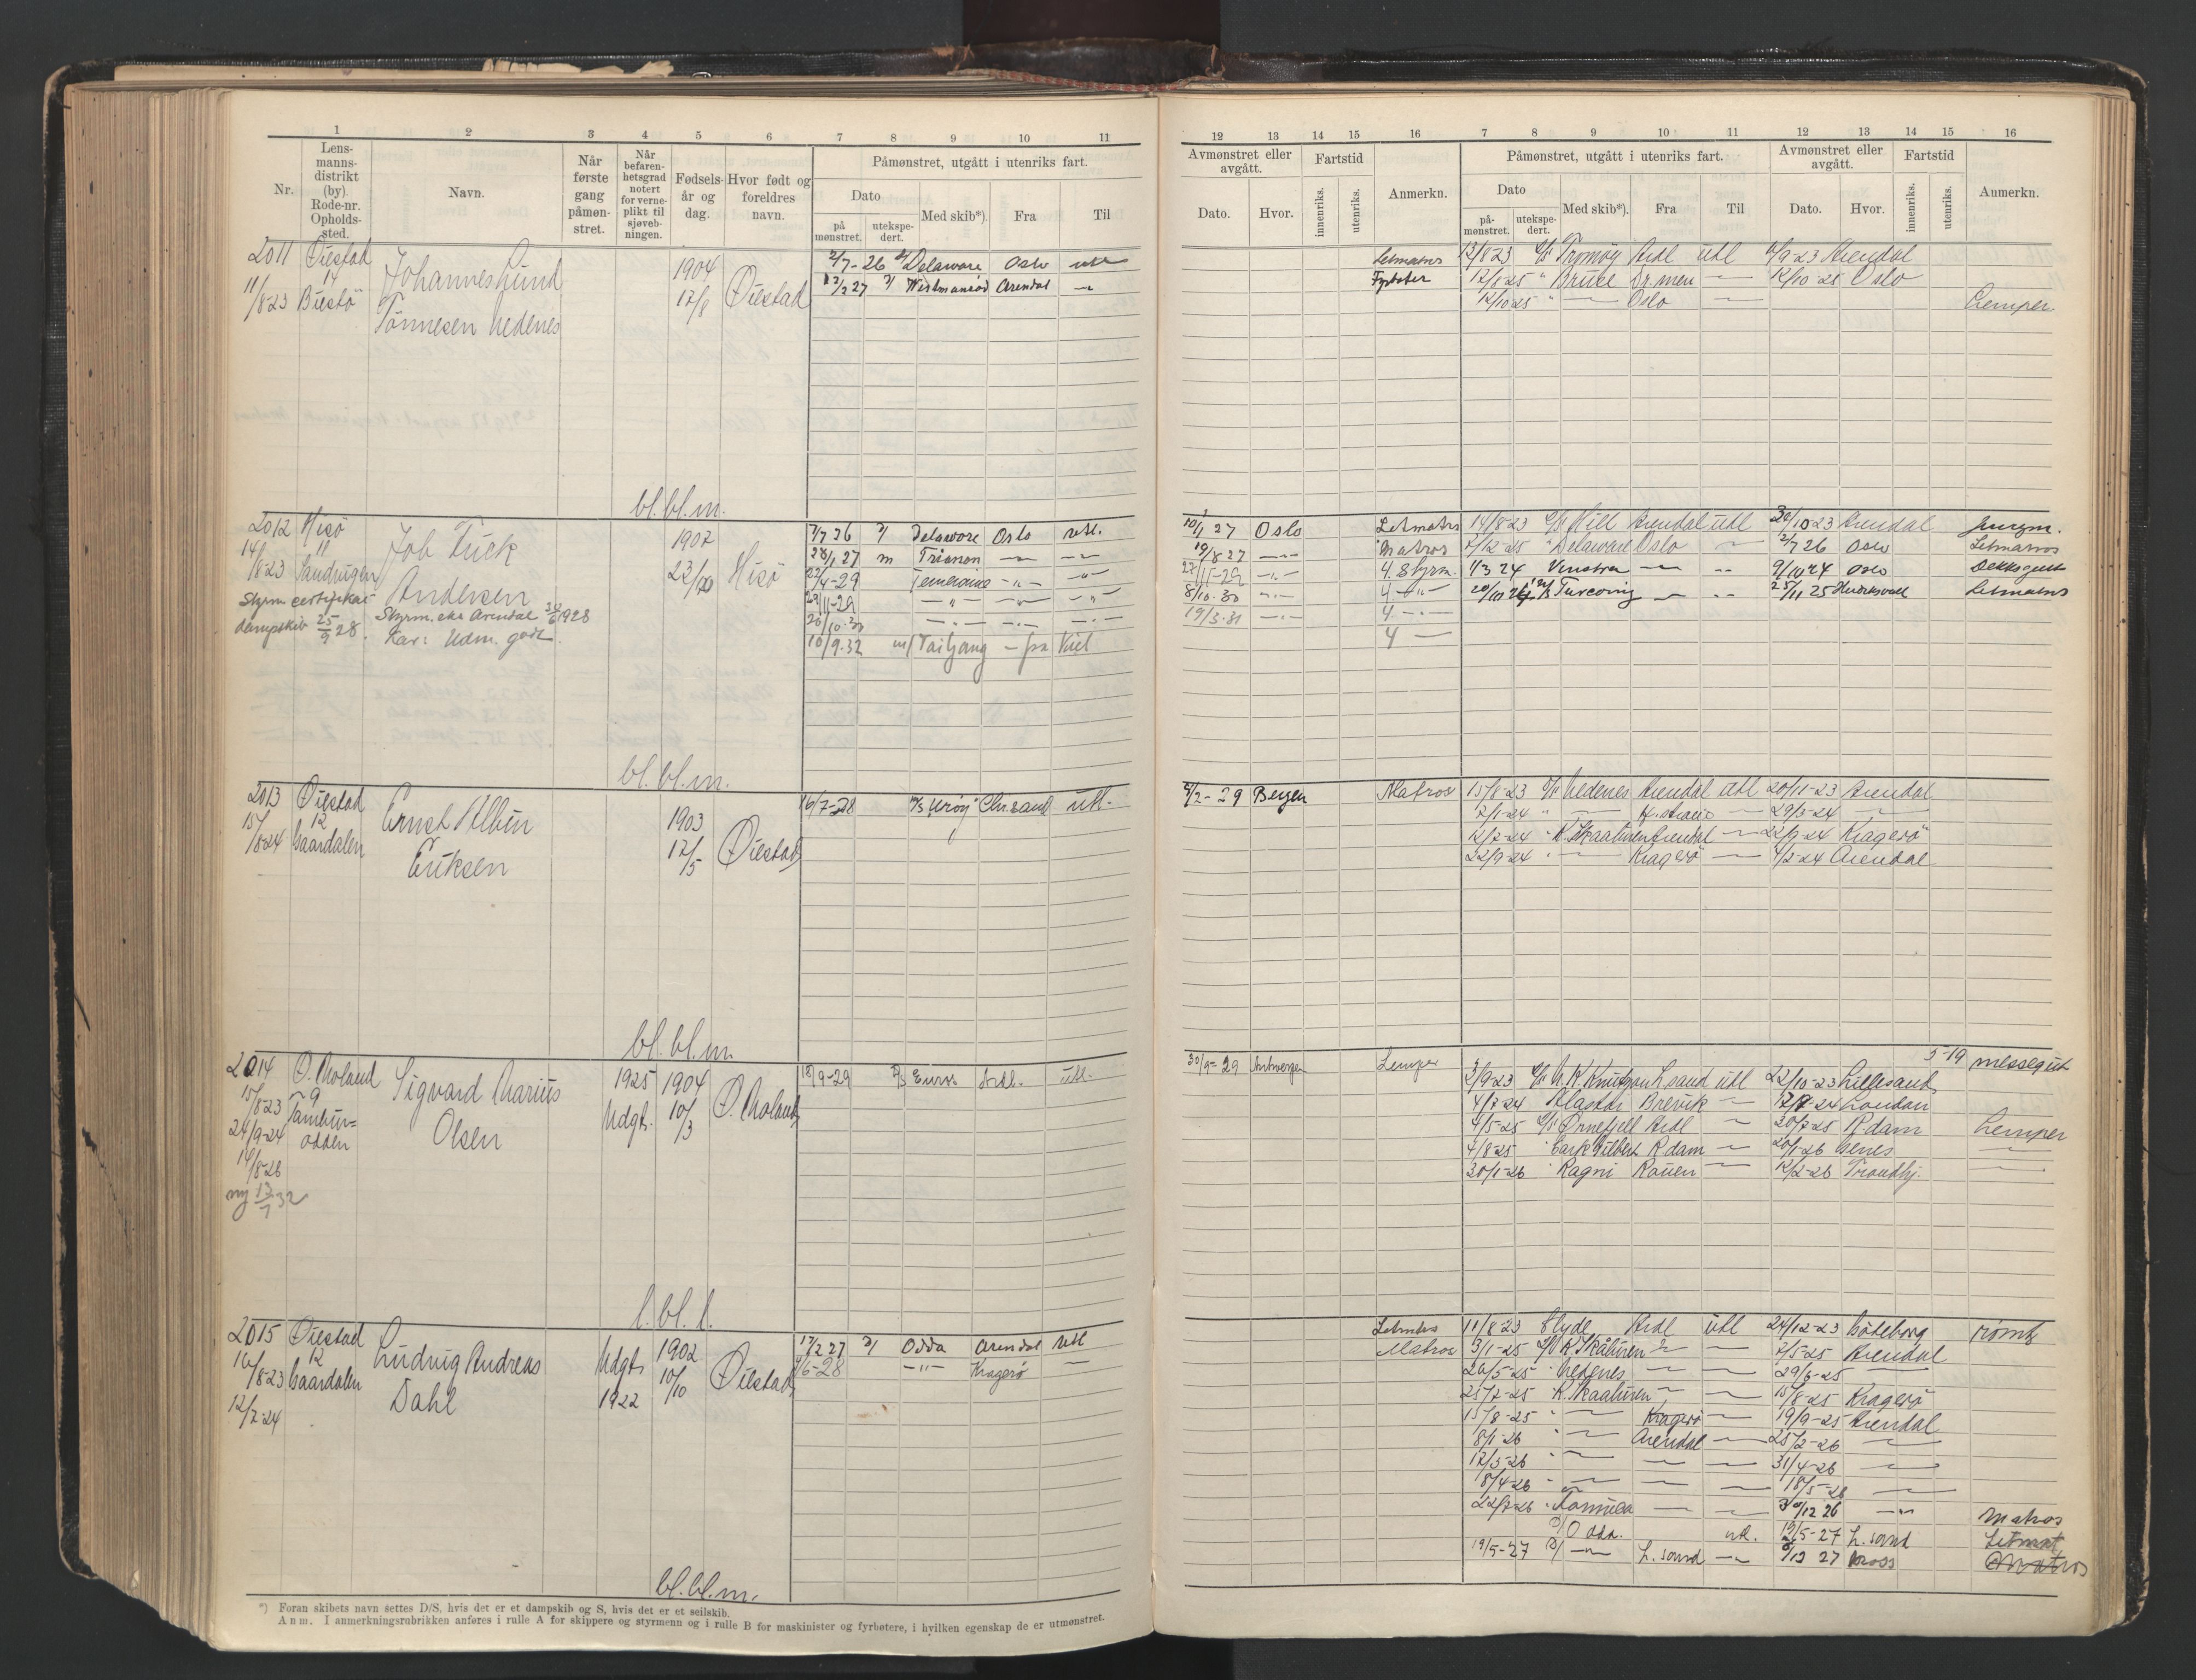 1 2 3 4 5 6 7 8 9 10 11
Nr. Lensmannsdistrikt (by) Rode-nr. Opholdssted. Navn. Når første gang påmønstret. Når befarenhetsgrad notert for verneplikt til sjøvebningen. Fødselsår og dag. Hvor født og foreldres navn. Påmønstret, utgått i utenriks fart.
Dato Med skib*). Fra Til
på mønstret. utekspedert.
2011 Øiestad 1904 2/7-26 Delaware Oslo utl
11/8 23 14 Johannes Lund 17/8 Øiestad 227 Arendal
Biestø Tønnesen Nedenes
bl. bl. m.
2012 Hisø Job Tuck 1907 7/7 26 Delaware Oslo utl.
14/8-23 11 Sandvigen Andersen Hisø 27 m Trianon
Styrm. certifikat Styrm. eks Arendal 1928 22/4-29 Temeraire
dampskib 25/9 28. Kar: Udm. godt. 29/11-29
26/10.30
10/9.32 m/ Taiyang - fra Kiel
bl. bl. m.
2013 Øiestad Ernst Albin 1903 16/7-28 Chr.sand utl.
15/8 24 12 Gaardalen Eriksen 17/5 Øiestad
bl. bl. m.
2014 Ø. Moland Sigvard Marius 1925 1904 18/9-29 Arl. utl.
15/8-23 9 Olsen Udgt. 10/3 Ø. Moland
24/9-24 Tambur=
odden
14/8-26
ny 13/7 32
l. bl. l.
2015 Øiestad Ludvig Andreas Udgt. 1902 17/2 27 Odda Arendal utl
16/8-23 12 Gaardalen Dahl 1922 10/10 Øiestad 6-28 Kragerø
12/2-24
bl. bl. m.
*) Foran skibets navn settes D/S, hvis det er et dampskib og S, hvis det er et seilskib.
Anm. I anmerkningsrubrikken anføres i rulle A for skippere og styrmenn og i rulle B for maskinister og fyrbøtere, i hvilken egenskap de er utmønstret.
12 13 14 15 16 7 8 9 10 11 12 13 14 15 16
Avmønstret eller avgått. Fartstid Anmerkn. Påmønstret, utgått i utenriks fart. Avmønstret eller avgått. Fartstid Anmerkn.
Dato. Hvor. innenriks. utenriks. Dato Med skib*). Fra Til Dato. Hvor. innenriks. utenriks.
på-mønstret. utekspedert.
Letmatros 13/8 23 Tromøy Ardl utl 6/9-23 Arendal
Fyrbøter 12/8-25 " Bruse Dr.men 12/10-25 Oslo
12/10 25 " Oslo Lemper
10/1 27 Oslo Letmatros 14/8-23 Arendal utl 30/10-23 Arendal Jungm.
19/8 27 Matros 2/12-25 " Delaware Oslo 2/7 26 Oslo Letmatros
27/11-29 4. Styrm. 1/3 24 Venstra 9/10 24 Oslo Dekksgutt
8/10.30 4 Turcoing 25/11 25 Letmatros
19/3.31 4
4
2/2-29 Bergen Matros 15/8-23 Nedenes Arendal utl 20/11-23 Arendal
7/1-24 29/3-24
12/7-24 K. Skaaluren Arendal 22/9-24 Kragerø
22/9-24 Kragerø 4/2-24 Arendal
30/9-29 Antwerpen Lemper 5-19 messegut
3/9-23 A.K. Knudzon L.sand utl 22/10-23 Lillesand
4/7-24 Alastor Brevik 24 London
4/5-25 Ørnefjell Ardl 30/7-25 R.dam Lemper
4/8-25 R.dam 20/1-26 Genes
30/1-26 " Ragni Rouen 12/2-26 Trondhj.
Letmatros 11/8-23 Clyde Ardl utl 24/12-23 Göteborg rømt
Matros 3/1-25 K. Skåluren 7/5-25 Arendal
20/5-25 " Nedenes 29/6-25
25/7-25 K. Skaaluren 15/8-25 Kragerø
15/8-25 " Kragerø 19/9-25 Arendal
8/1-26 " Arendal 25/2-26
12/3-26 " 31/4-26
18/4-26 " 18/5-26
22/7-26 12 26 Matros
Odda. utl. 19/5-27 L.sand Letmat
19/5-27 L.sand 12 27 Moss Matros